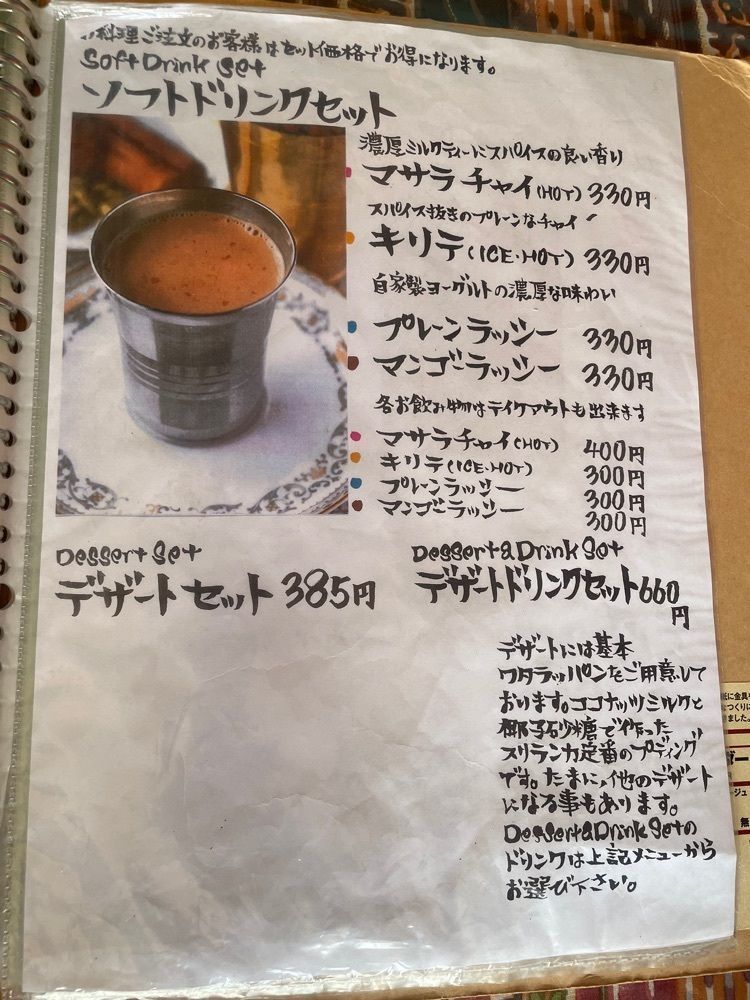 お料理ご注文のお客様はセット価格でお得になります。
Soft Drink Set
ソフトドリンクセット
濃厚ミルクティーにスパイスの良い香り
マサラチャイ(HOT) 330円
スパイス抜きのプレーンなチャイ
キリテ(ICE・HOT) 330円
自家製ヨーグルトの濃厚な味わい
プレーンラッシー 330円
マンゴーラッシー 330円
各お飲み物はテイクアウトも出来ます
マサラチャイ(HOT) 400円
キリテ(ICE・HOT) 300円
プレーンラッシー 300円
マンゴーラッシー 300円
Dessert Set
デザートセット 385円
Dessert&Drink Set
デザートドリンクセット660
円
デザートには基本
ワタラッパンをご用意して
おります。ココナッツミルクと
椰子砂糖で作った
スリランカ定番のプディング
です。たまに、他のデザート
になる事もあります。
Dessert&Drink Setの
ドリンクは上記メニューから
お選び下さい。